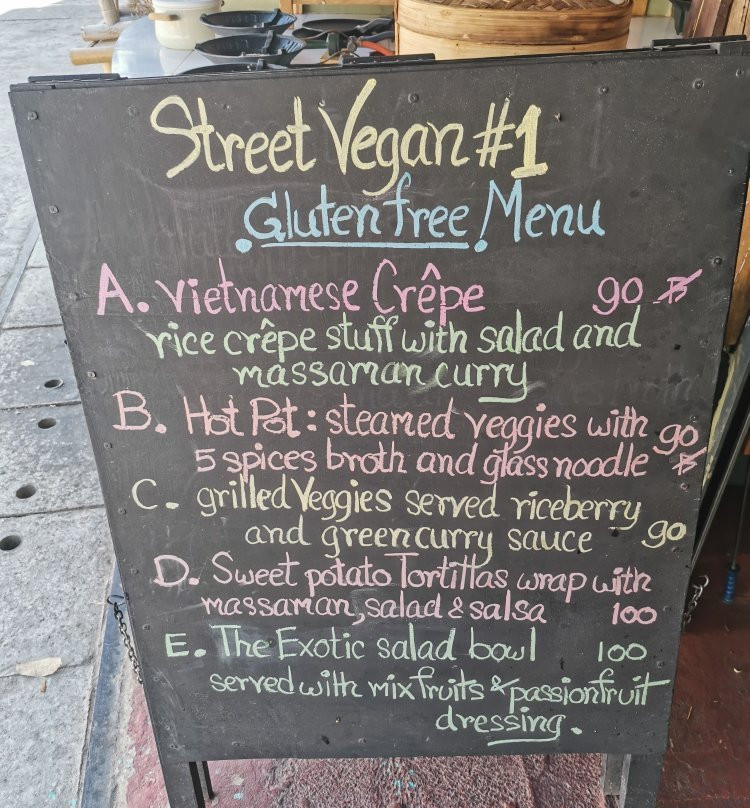 Street Vegan #1
Gluten free Menu
A. Vietnamese Crêpe 90 ฿
rice crêpe stuff with salad and
massaman curry
B. Hot Pot: steamed veggies with 90 ฿
5 spices broth and glass noodle
C. grilled Veggies served riceberry
and green curry sauce 90
D. Sweet potato Tortillas wrap with
massaman, salad & salsa 100
E. The Exotic salad bowl 100
served with mix fruits & passionfruit
dressing.